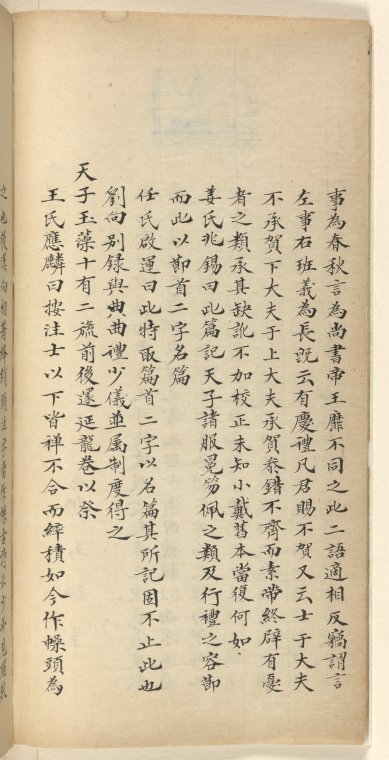 事為春秋言為尚書帝王靡不同之此二語適相反竊謂言
左事右班義為長說云有慶禮凡君賜不賀又云士于大夫
不承賀下大夫于上大夫承賀參錯不齊而素帶終辟有憂
者之類承其缺訛不加校正未知小戴舊本當復何如
姜氏兆錫曰此篇記天子諸服冕笏佩之類及行禮之容節
而此以節首二字名篇
任氏啟運曰此特取篇首二字以名篇其所記固不止此也
劉向別録與曲禮少儀並属制度得之
天子玉藻十有二旒前後邃延龍卷以祭
王氏應麟曰按注士以下皆禅不合而繂積如今作幧頭為